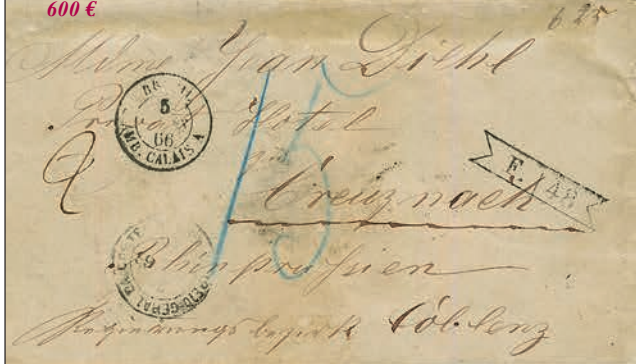 600 €
6 25
Mdme Jean Diehl
5
66
AMB. CALAIS A
Hotel
15
F. / 48
Creuznach
Rheinpreussen
Regierungsbezirk Coblenz